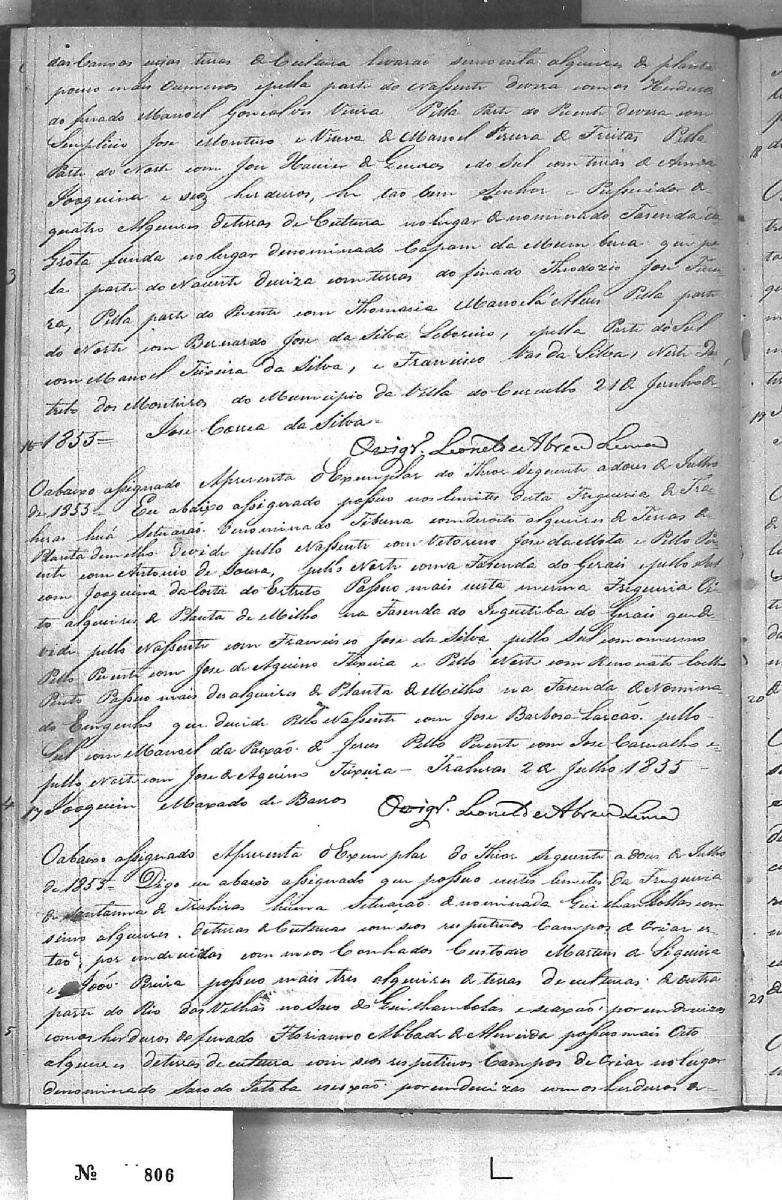 das Campos nisas terras de Cultura levarão secenta alqueires de planta
pouco mais oumenos epella parte do Nassente deviza com os Herdeiros
do finado Manoel Goncalves Vieira Pella Parte do Puente deviza com
Semplicio Jose Monteiro e Viuva de Manoel Pereira de Freitas Pella
Parte do Norte com Jose Xavier de e do Sul com terras de Anna
Joaquina e seos herdeiros, he tao bem Senhor e Pussuidor de
quatro Alqueires deterras de Cultura no lugar de nominado Fazenda da
Grota funda no lugar denominado Capam da que pe
3 la parte do Nacente deviza com terras do finado Theodozio Jose
ra, Pella parte do Puente com Thomazia Manoela Alves Pella parte
do Norte com Bernardo Jose da Silva Leboreiro, epella Parte do Sul
com Manoel Teixeira da Silva, e Francisco Vas da Silva, Neste Des
treto dos Monteiros do Municipio da Villa do Curvello 21 de Junho de
1855 = Jose Correa da Silva =
16 Ovigr. Leonel de Abreu Lima
Oabaixo assignado Apresenta o Exemplar do Theor seguinte adoes de Julho
de 1855 - Eu abaixo assignado possuo nos lemites desta Freguezia de Tra
hiras huá Setuacão denominado Tibuna comdozoito alqueires de Terras de
Planta demilho devide pello Nassente com Vetorino Jose da Mota e Pello Pu
ente com Antonio de Souza, pello Norte coma Fazenda do Gerais epello Sul
com Joaquina da Costa do Estreto Passuo mais nesta mesma Freguezia Oi
to alqueires de Planta de Milho na Fazenda do Jequitiba do Gerais que de
vide pello Nassente com Francisco Jose da Silva pello Sul com omesmo
Pello Puente com Jose de Aquino Teixeira e Pello Norte com
Passuo mais des alqueires de Planta de Milho na Fazenda de Nomina
do Emgenho que devide Pello Nassente com Jose Barbosa Larcão pello
Sul com Manoel da Paxão de Jezus Pello Puente com Jose Carvalho e
pello Norte com Jose de Aquino Teixeira - Trahiras 2 de Julho 1855 -
4 17 Joaquim Maxado de Barros Ovigr. Leonel de Abreu Lima
Oabaixo assignado Apresenta o Exemplar do Theor Seguinte a doues de Julho
de 1855 - Digo eu abaixo assignado que possuo nestes lemites da Freguezia
de Santanna de Trahiras huma Setuacão de nominada com
sinco alqueires deterras de Culturas com seos respetivos Campos de Criar es
tão por endevizas com meos Conhados Custodio Martins de Siqueira
e João possuo mais tres alqueires de terras de culturas de outra
parte do Rio das Velhas no Saco do esaxão porendevizas
5 comos herdeiros do finado Florianno Abbade de Almeida possuo mais Oito
alqueires deterras de cultura com seos respetivos Campos de Criar no lugar
denominado Saco do esaxão porendevizas com os herdeiros de
18
19
20
21
No 806
L